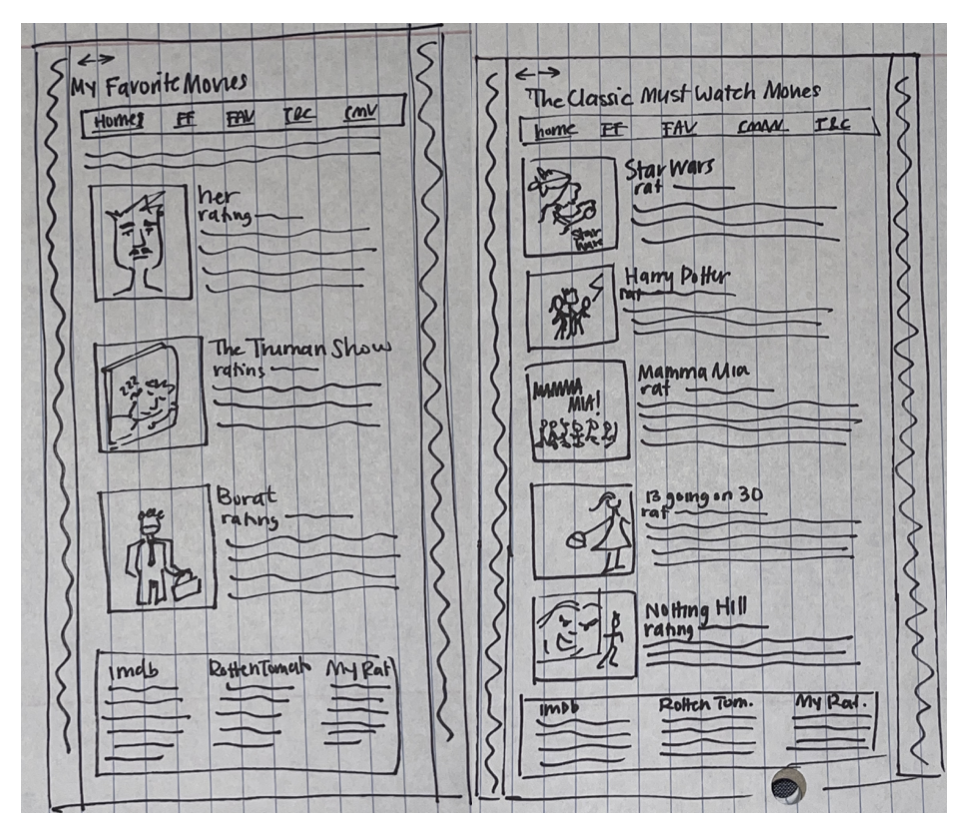 My Favorite Movies
Home EF FAV I&C CMW
her
rating
The Truman Show
rating
Borat
rating
Imdb Rotten Tomato My Rat
The Classic Must Watch Movies
home EF FAV CMW I&C
Star Wars
rat
Star
Wars
Harry Potter
rat
Mamma Mia
rat
MAMMA
MIA!
13 going on 30
rat
Notting Hill
rating
IMDb Rotten Tom. My Rat.